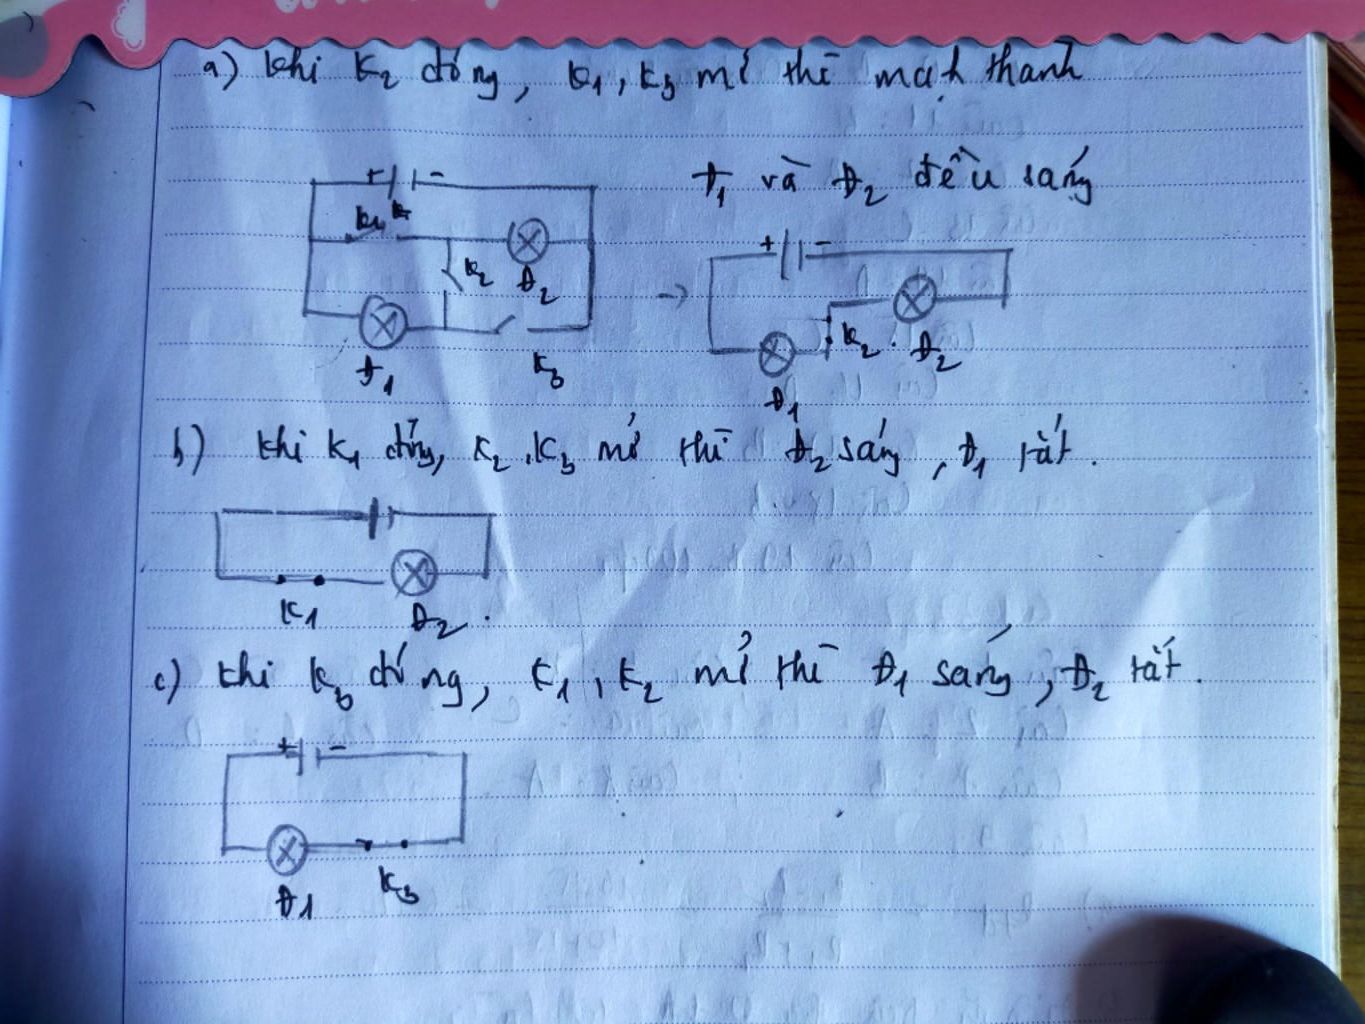 a) khi K2 đóng, K1, K3 mở thì mạch thành
Đ1 và Đ2 đều sáng
+ -
K1 K
K2 Đ2
Đ1 K3
+ -
K2 Đ2
Đ1
b) khi K1 đóng, K2, K3 mở thì Đ2 sáng, Đ1 tắt.
K1 Đ2.
c) khi K3 đóng, K1, K2 mở thì Đ1 sáng, Đ2 tắt.
+ -
Đ1 K3